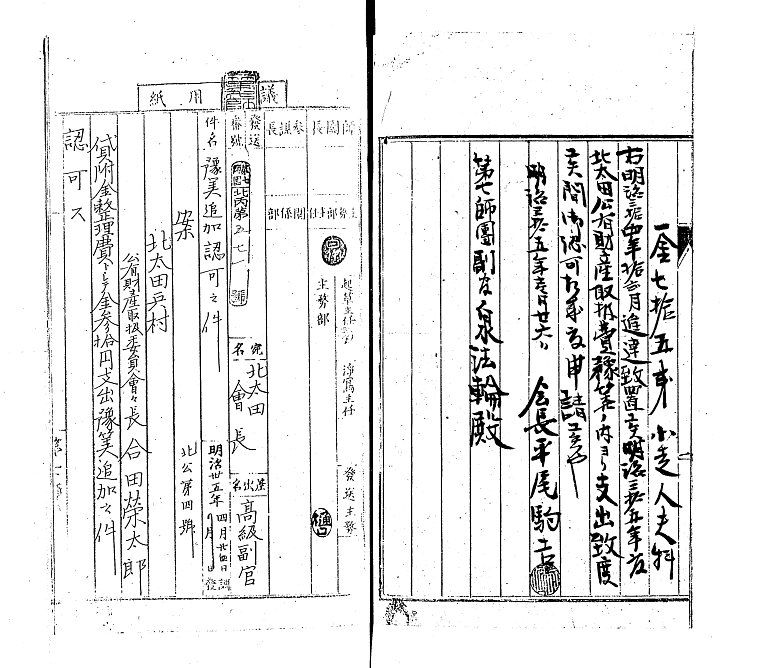 一金七拾五銭 小走人夫料
右明治三拾四年拾弐月追連致置候処明治三拾五年度
北太田公有財産取扱費予算ノ内ヨリ支出致度
候間御認可相成度申請候也
明治三拾五年 月廿六日 会長平尾駒吉
第七師團副官 泉法輪殿
議 用紙
師團長 參謀長
主務部 主任 關係部
主務部
起草主任
淨寫主任
發送主務
發送番號 北丙第五七一號
宛名 北太田會長
差出名 高級副官
件名 豫筭追加認可之件
明治卅五年四月廿四日
月 日發
北公第四號
案
北太田兵村
公有財産取扱委員會々長 合田榮太郎
貸附金整理費トシテ金参拾円支出豫筭追加之件
認可ス